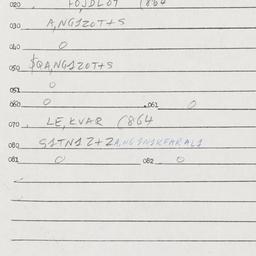 020 FOJDLOT (864
030 A,NG1ZOT+S
040 O
050 $QA,NG1ZOT+S
051 O
060 O .061 O
070 LE,KVAR (864
080 S1TN12+2A,NG1N1KFARAL1
081 O 082 O